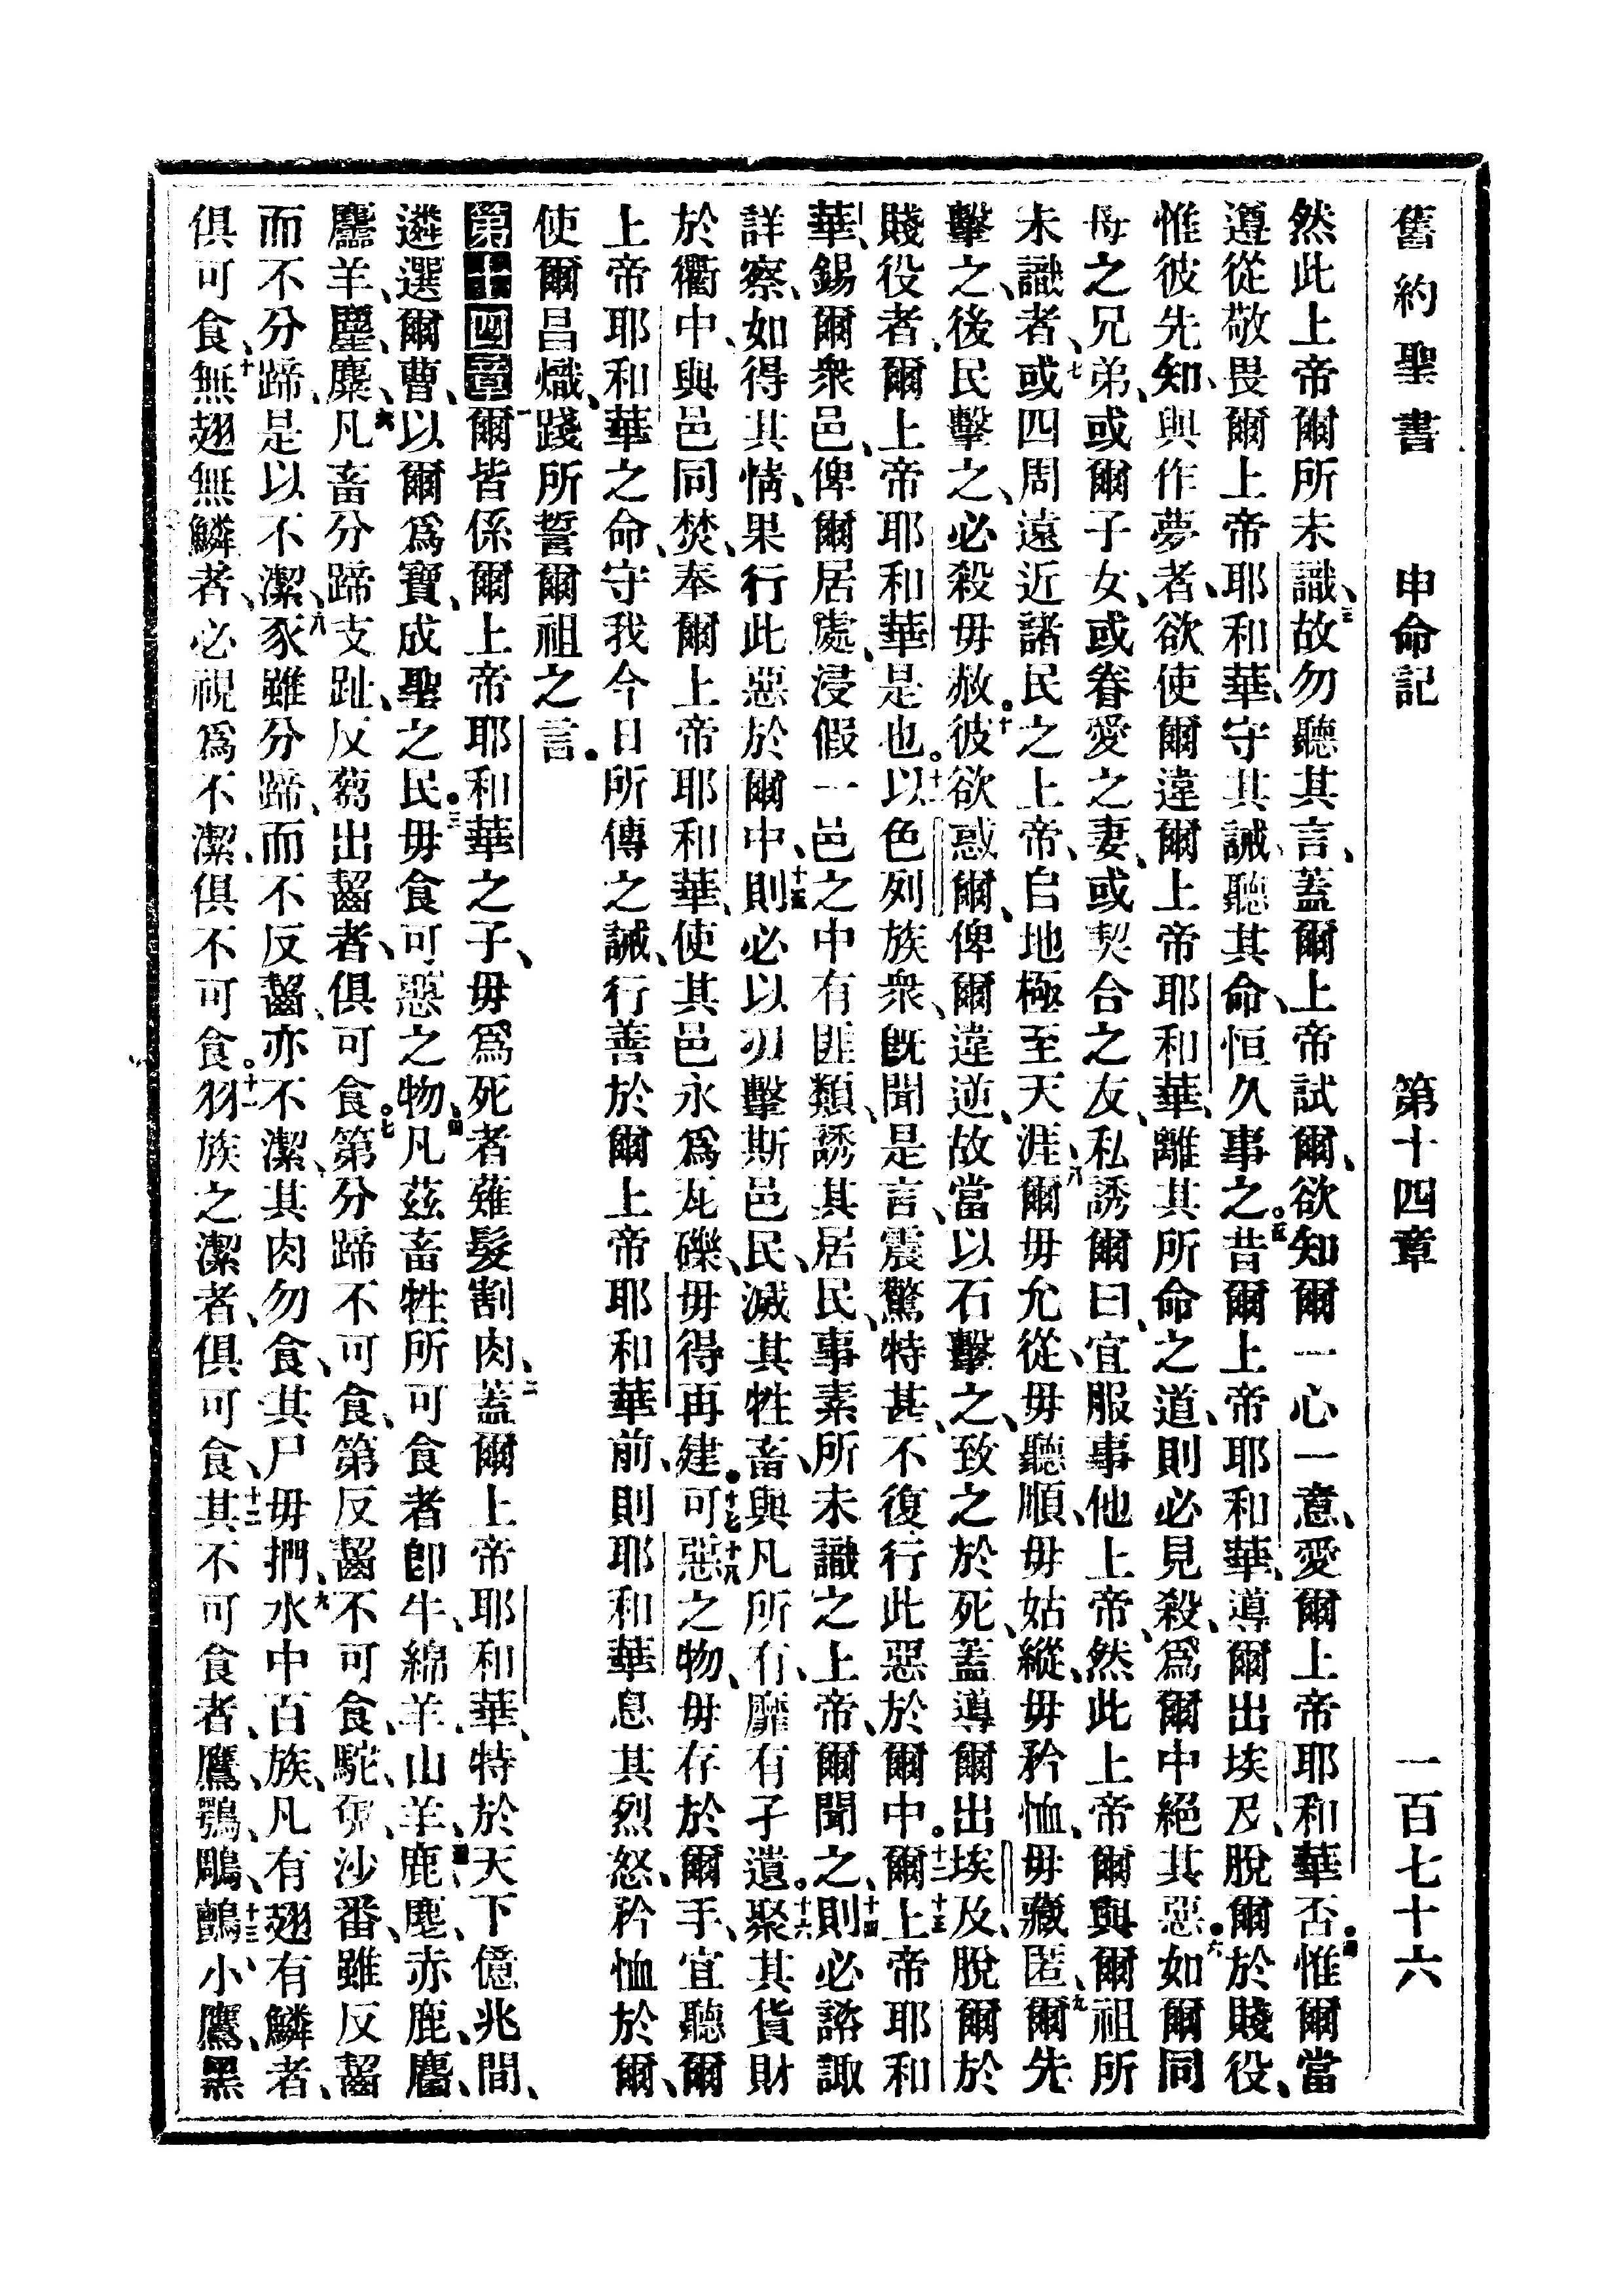 舊約聖書 申命記 第十四章 一百七十六
然此上帝爾所未識、三故勿聽其言、蓋爾上帝試爾、欲知爾一心一意、愛爾上帝耶和華否。四惟爾當
遵從敬畏爾上帝耶和華、守其誡、聽其命、恒久事之。五昔爾上帝耶和華、導爾出埃及、脫爾於賤役、
惟彼先知、與作夢者、欲使爾違爾上帝耶和華、離其所命之道、則必見殺、爲爾中絕其惡。六如爾同
母之兄弟、或爾子女、或眷愛之妻、或契合之友、私誘爾曰、宜服事他上帝、然此上帝爾與爾祖所
未識者、七或四周遠近諸民之上帝、自地極至天涯、八爾毋允從、毋聽順、毋姑縱、毋矜恤、毋藏匿、九爾先
擊之、後民擊之、必殺毋赦。十彼欲惑爾、俾爾違逆、故當以石擊之、致之於死、蓋導爾出埃及、脫爾於
賤役者、爾上帝耶和華是也。十一以色列族衆、既聞是言、震驚特甚、不復行此惡於爾中。十二十三爾上帝耶和
華、錫爾衆邑、俾爾居處、浸假一邑之中有匪類、誘其居民、事素所未識之上帝、爾聞之、十四則必諮諏
詳察、如得其情、果行此惡於爾中、十五則必以刃擊斯邑民、滅其牲畜、與凡所有、靡有孑遺。十六聚其貨財
於衢中、與邑同焚、奉爾上帝耶和華、使其邑永爲瓦礫、毋得再建。十七十八可惡之物、毋存於爾手、宜聽爾
上帝耶和華之命、守我今日所傳之誡、行善於爾上帝耶和華前、則耶和華息其烈怒、矜恤於爾、
使爾昌熾、踐所誓爾祖之言。
第十四章 一爾皆係爾上帝耶和華之子、毋爲死者薙髮割肉、二蓋爾上帝耶和華、特於天下億兆間、
遴選爾曹、以爾爲寶、成聖之民。三毋食可惡之物、四凡茲畜牲所可食者卽牛、綿羊、山羊、五鹿、麈、赤鹿、麕、
麢羊、麈、麋、六凡畜分蹄支趾、反芻出齝者、俱可食。七第分蹄不可食、第反齝不可食、駝、兔、沙番、雖反齝
而不分蹄、是以不潔、八豕雖分蹄、而不反齝、亦不潔、其肉勿食、其尸毋捫、九水中百族、凡有翅有鱗者、
俱可食、十無翅無鱗者、必視爲不潔、俱不可食。十一羽族之潔者、俱可食、十二其不可食者、鷹、鶚、鵰、十三鸇、小鷹、黑